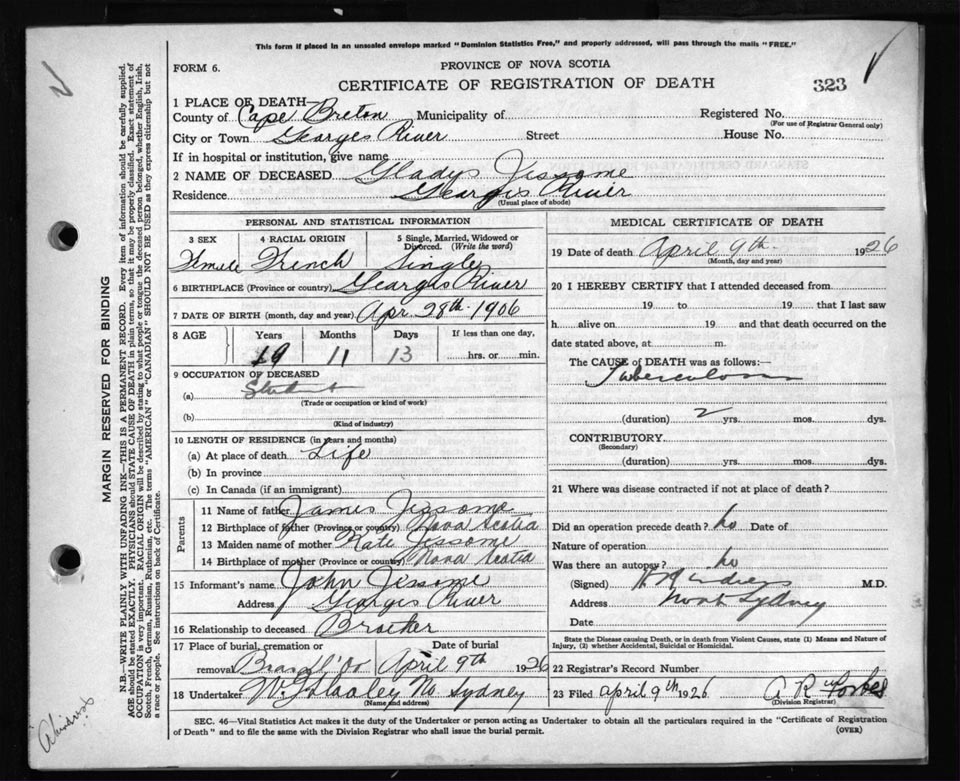 This form if placed in an unsealed envelope marked "Dominion Statistics Free," and properly addressed, will pass through the mails "FREE."
FORM 6.
PROVINCE OF NOVA SCOTIA
CERTIFICATE OF REGISTRATION OF DEATH
323
1 PLACE OF DEATH
County of Cape Breton Municipality of Registered No.
(For use of Registrar General only)
City or Town Georges River Street House No.
If in hospital or institution, give name
2 NAME OF DECEASED Gladys Jessome
Residence Georges River
(Usual place of abode)
PERSONAL AND STATISTICAL INFORMATION
3 SEX 4 RACIAL ORIGIN 5 Single, Married, Widowed or Divorced. (Write the word)
Female French Single
6 BIRTHPLACE (Province or country) Georges River
7 DATE OF BIRTH (month, day and year) Apr. 28th 1906
8 AGE Years Months Days If less than one day,
19 11 13 hrs. or min.
9 OCCUPATION OF DECEASED
(a) Student
(Trade or occupation or kind of work)
(b)
(Kind of industry)
10 LENGTH OF RESIDENCE (in years and months)
(a) At place of death Life
(b) In province
(c) In Canada (if an immigrant)
Parents
11 Name of father James Jessome
12 Birthplace of father (Province or country) Nova Scotia
13 Maiden name of mother Kate Jessome
14 Birthplace of mother (Province or country) Nova Scotia
15 Informant's name John Jessome
Address Georges River
16 Relationship to deceased Brother
17 Place of burial, cremation or Date of burial
removal April 9th 1926
18 Undertaker No. Sydney
(Name and address)
MEDICAL CERTIFICATE OF DEATH
19 Date of death April 9th 1926
(Month, day and year)
20 I HEREBY CERTIFY that I attended deceased from
19 to 19 that I last saw
h alive on 19 and that death occurred on the
date stated above, at m.
The CAUSE of DEATH was as follows:—
Tuberculosis
(duration) 2 yrs. mos. dys.
CONTRIBUTORY
(Secondary)
(duration) yrs. mos. dys.
21 Where was disease contracted if not at place of death?
Did an operation precede death? no Date of
Nature of operation
Was there an autopsy? no
(Signed) M.D.
Address North Sydney
Date
State the Disease causing Death, or in death from Violent Causes, state (1) Means and Nature of
Injury, (2) whether Accidental, Suicidal or Homicidal.
22 Registrar's Record Number
23 Filed april 9th 1926 A R Forbes
(Division Registrar)
SEC. 46—Vital Statistics Act makes it the duty of the Undertaker or person acting as Undertaker to obtain all the particulars required in the "Certificate of Registration
of Death" and to file the same with the Division Registrar who shall issue the burial permit.
(OVER)
MARGIN RESERVED FOR BINDING
N.B.—WRITE PLAINLY WITH UNFADING INK—THIS IS A PERMANENT RECORD. Every item of information should be carefully supplied.
AGE should be stated EXACTLY. PHYSICIANS should STATE CAUSE OF DEATH in plain terms, so that it may be properly classified. Exact statement of
OCCUPATION is very important. RACIAL ORIGIN will be described by stating to what people or tongue the deceased person belonged, whether English, Irish,
Scotch, French, German, Russian, Ruthenian, etc. The terms "AMERICAN" or "CANADIAN" SHOULD NOT BE USED as they express citizenship but not
a race or people. See instructions on back of Certificate.